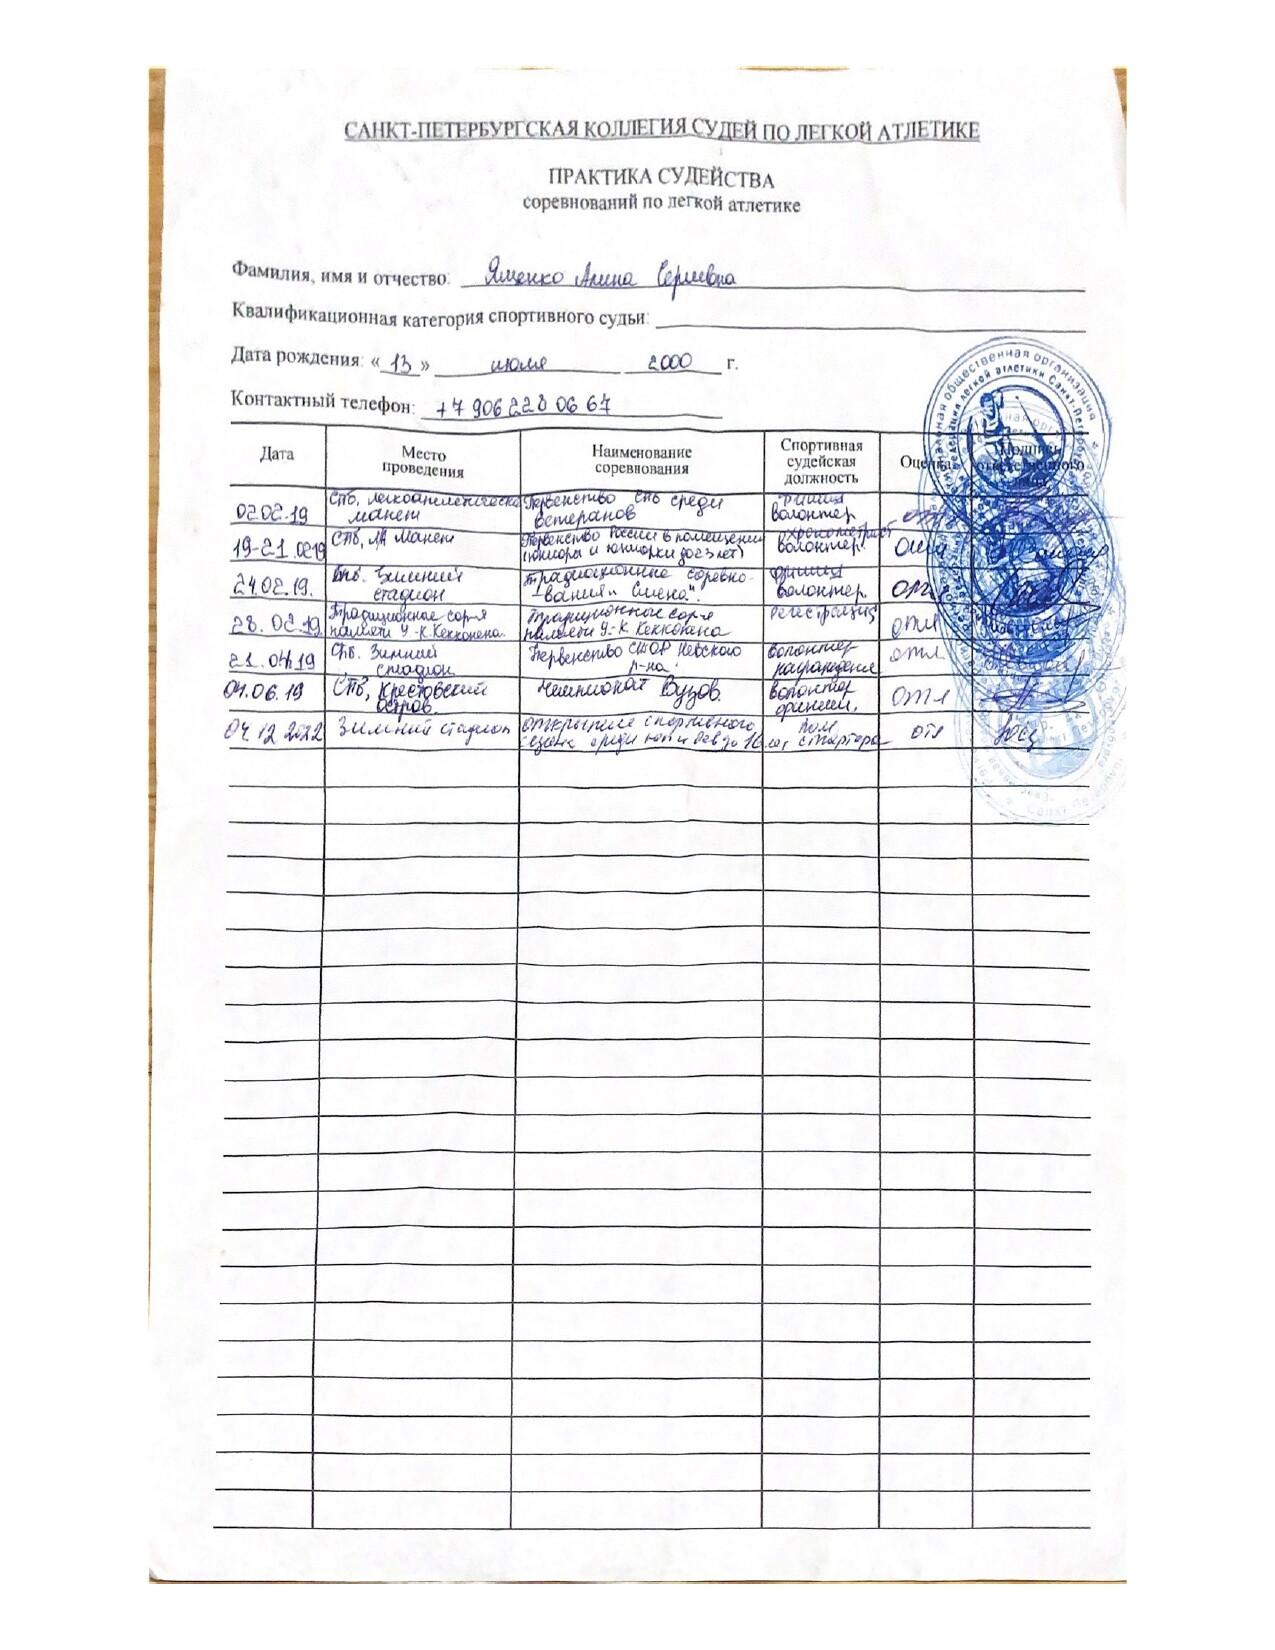 САНКТ-ПЕТЕРБУРГСКАЯ КОЛЛЕГИЯ СУДЕЙ ПО ЛЕГКОЙ АТЛЕТИКЕ
ПРАКТИКА СУДЕЙСТВА
соревнований по легкой атлетике
Фамилия, имя и отчество: Ященко Алина Сергеевна
Квалификационная категория спортивного судьи:
Дата рождения: «13» июля 2000 г.
Контактный телефон: +7 906 228 06 67
Дата Место проведения Наименование соревнования Спортивная судейская должность Оценка Подпись ответственного
02.02.19 СПб, легкоатлетическ манеж Первенство СПб среди ветеранов финиш волонтер
19-21.0219 СПб, ЛА Манеж Первенство России в помещении (юниоры и юниорки до 23 лет) хронометрист волонтер. Отл
24.02.19. Спб. Зимний стадион Традиционные соревнования "Смена". финиш волонтер. отл
28.02.19 Традиционное сор-я памяти У.-К. Кекконена. Традиционные сор-я памяти У.-К Кекконена Регистрация отл
21.04.19 Спб. Зимний стадион Первенство СШОР Невского р-на. волонтер награждение отл
04.06.19 СПб, Крестовский остров. Чемпионат Вузов. волонтер финиш, отл
04.12 2022 Зимний стадион открытие спортивного сезона среди юн и дев до 16 Пом стартера отл